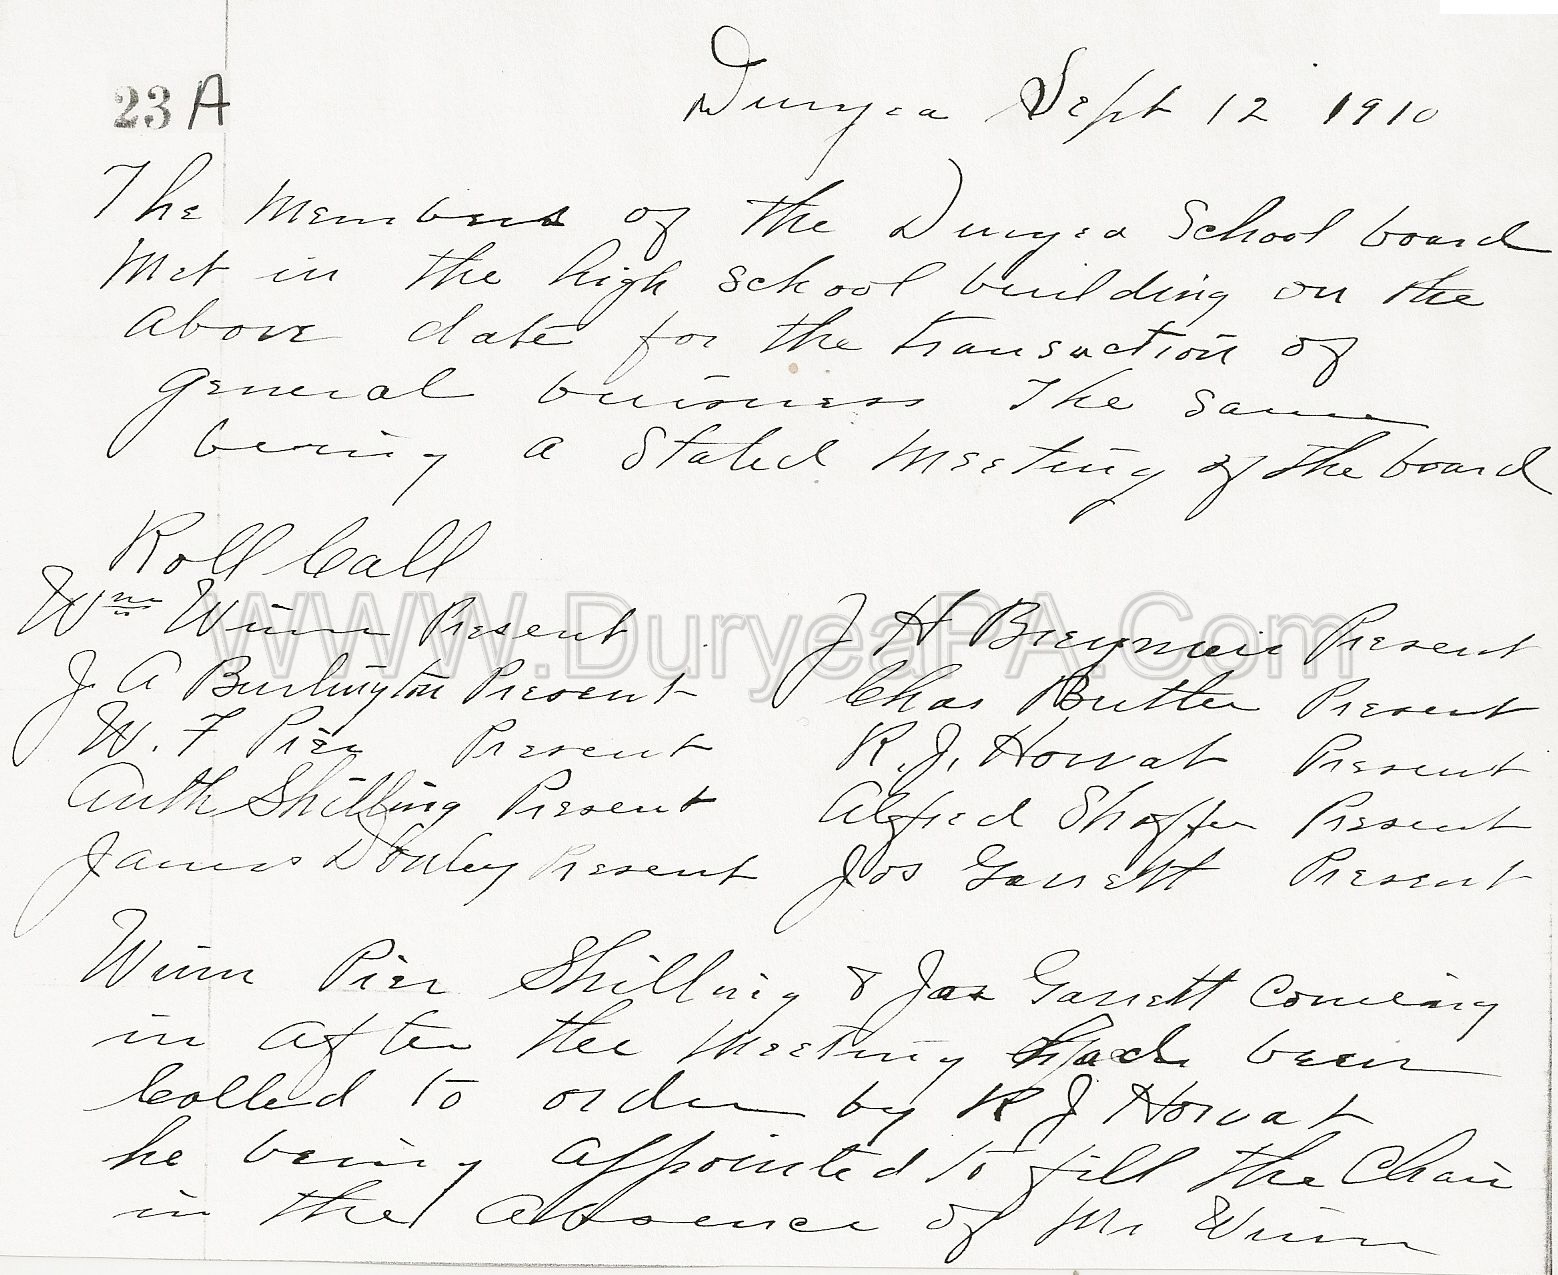 23 A
Duryea Sept 12 1910
The Members of the Duryea School board
Met in the high school building on the
above date for the transaction of
general buisness The same
being a Stated Meeting of the board
Roll Call
Wm Winn Present J H Breymeir Present
J. A Burlington Present Chas Butler Present
W. F Pier Present R. J. Horvat Present
Anth Shilling Present Alfred Shaffer Present
James Donley Present Jos Garrett Present
WWW.DuryeaPA.Com
Winn Pier Shilling & Jos Garrett Comeing
in after the Meeting had been
Called to order by R J Horvat
he being appointed to fill the Chair
in the absence of Mr Winn